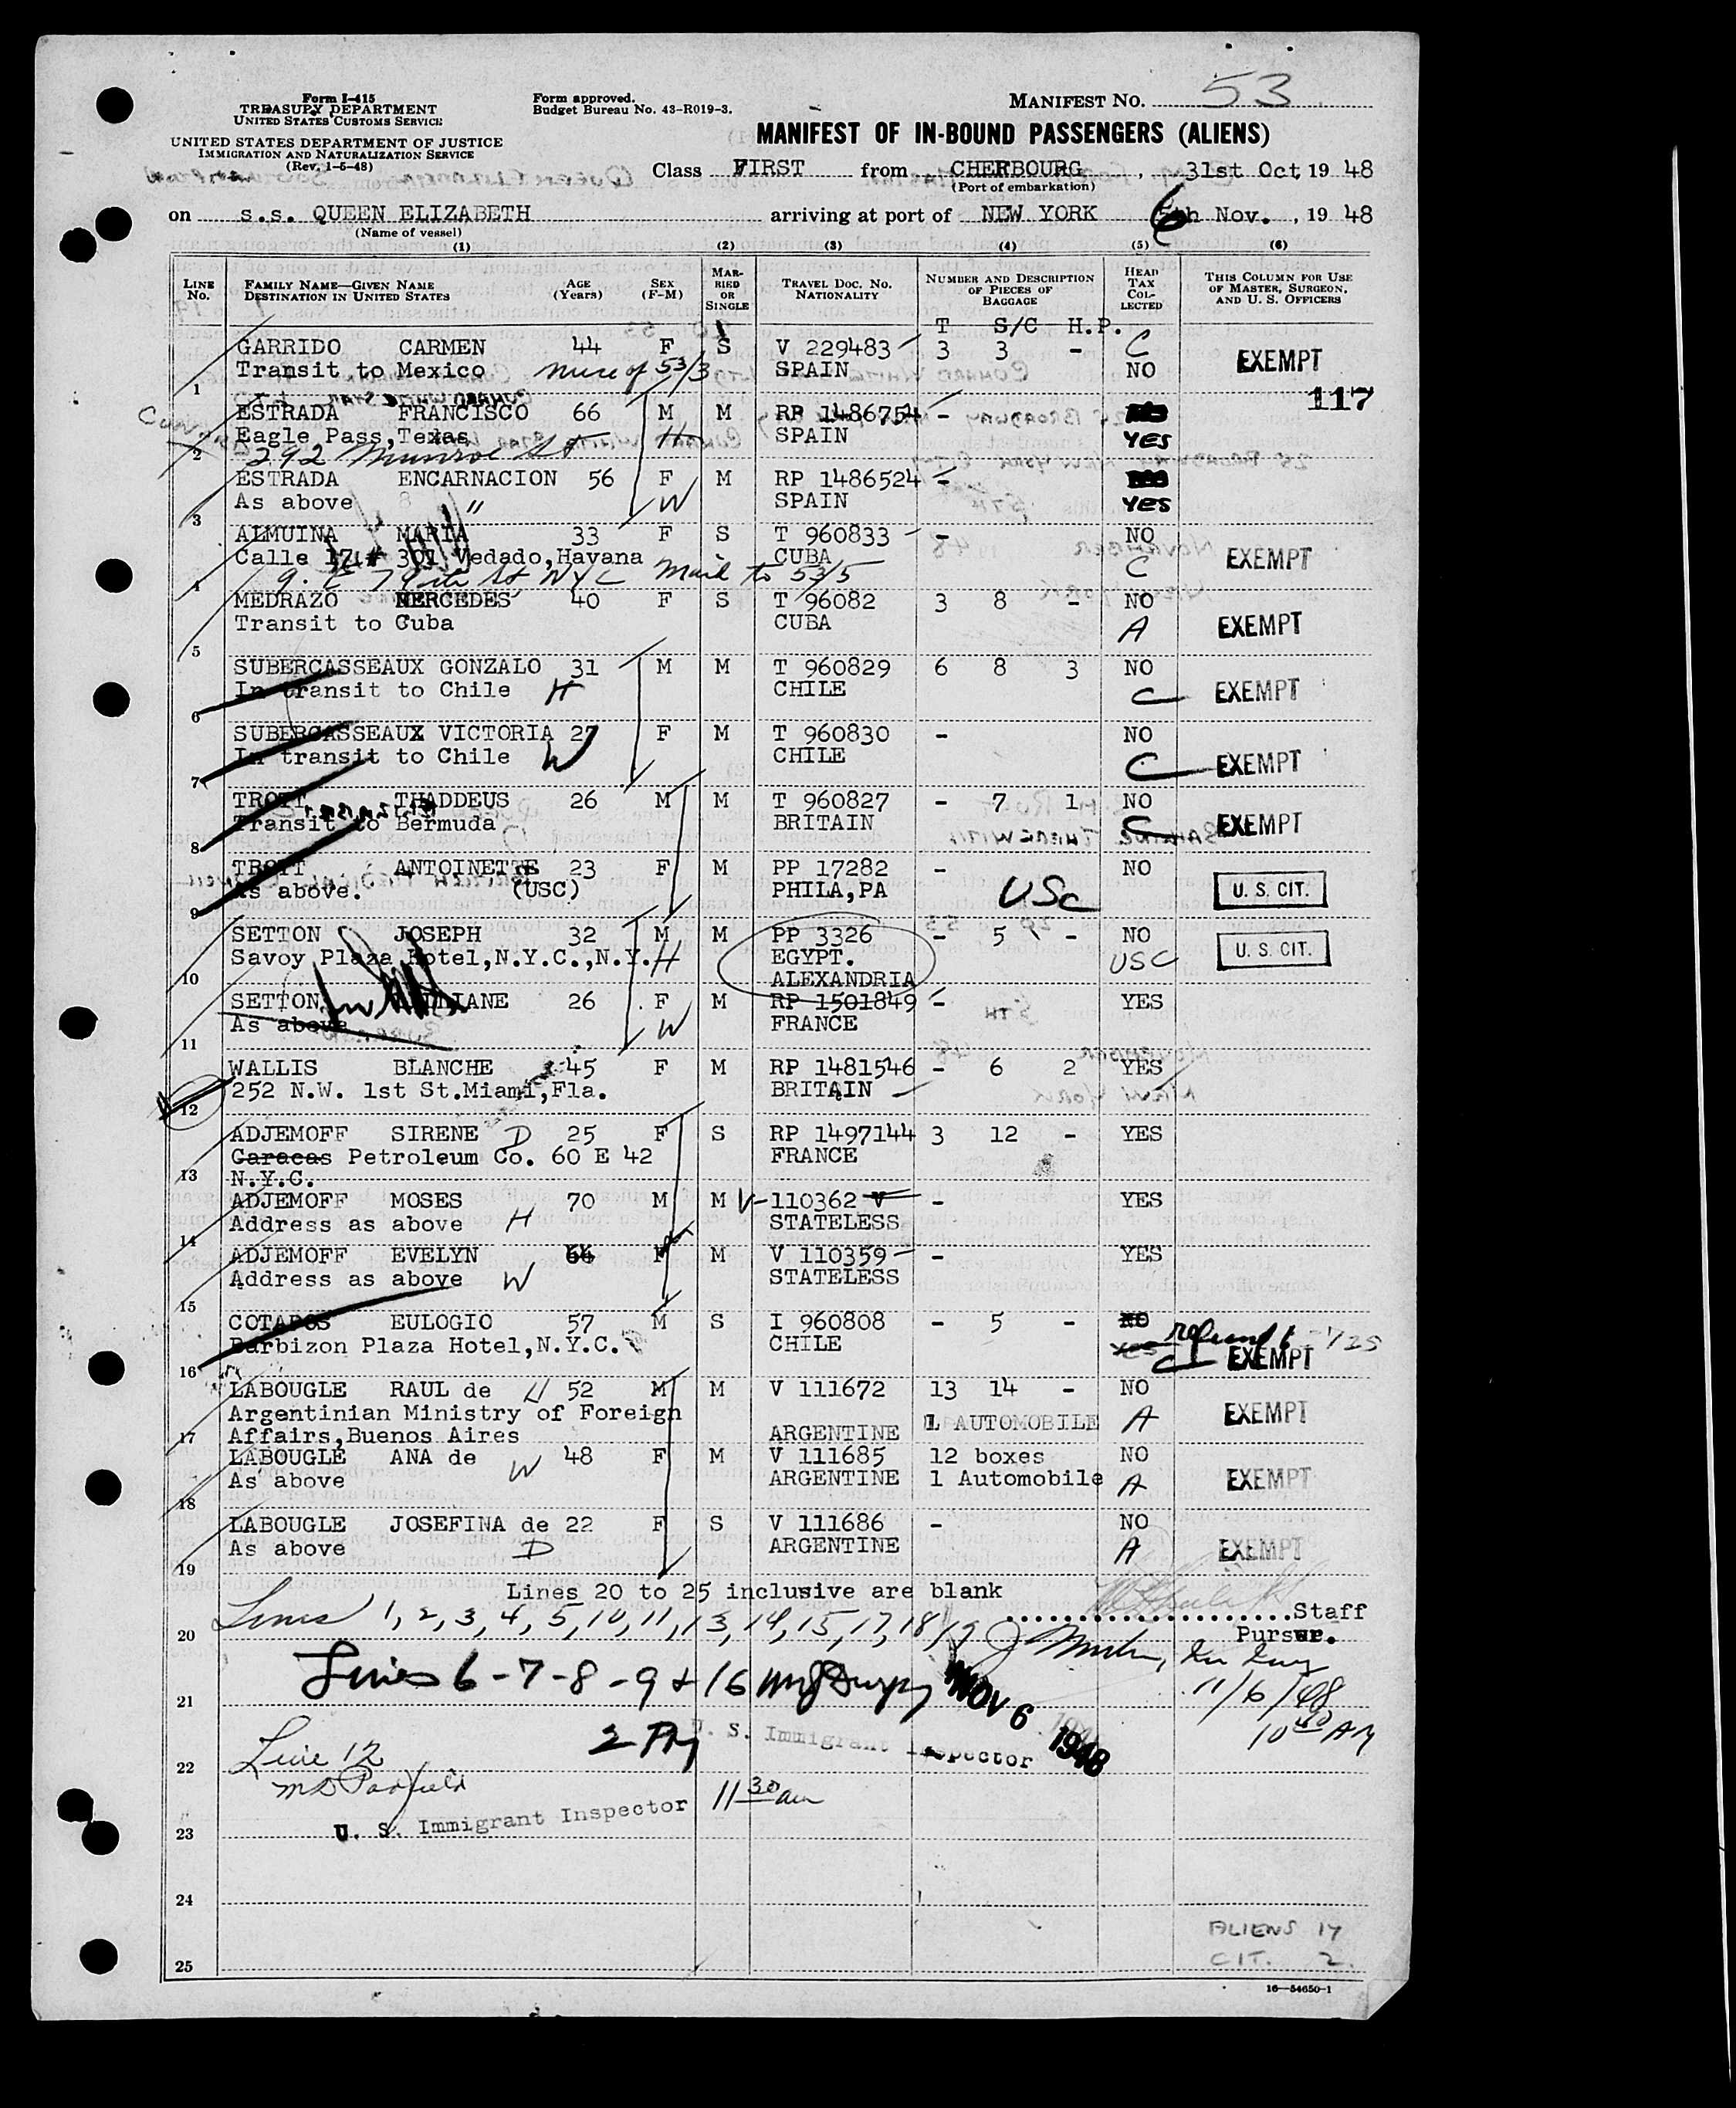 Form I-415
TREASURY DEPARTMENT
UNITED STATES CUSTOMS SERVICE
UNITED STATES DEPARTMENT OF JUSTICE
IMMIGRATION AND NATURALIZATION SERVICE
(Rev. 1-5-48)
Form approved.
Budget Bureau No. 43-R019-3.
MANIFEST NO. 53
MANIFEST OF IN-BOUND PASSENGERS (ALIENS)
Class FIRST from CHERBOURG, 31st Oct, 19 48
(Port of embarkation)
on s.s. QUEEN ELIZABETH arriving at port of NEW YORK 6th Nov., 19 48
(Name of vessel)
(1) (2) (3) (4) (5) (6)
LINE No. FAMILY NAME—GIVEN NAME DESTINATION IN UNITED STATES AGE (Years) SEX (F-M) MARRIED OR SINGLE TRAVEL DOC. NO. NATIONALITY NUMBER AND DESCRIPTION OF PIECES OF BAGGAGE HEAD TAX COLLECTED THIS COLUMN FOR USE OF MASTER, SURGEON, AND U. S. OFFICERS
T S/C H.P.
GARRIDO CARMEN 44 F S V 229483 3 3 - C EXEMPT
1 Transit to Mexico nurse of 53/3 SPAIN NO
117
ESTRADA FRANCISCO 66 M M RP 1486754 -
Eagle Pass, Texas H SPAIN YES
2 292 Munroe St
ESTRADA ENCARNACION 56 F M RP 1486524 -
3 As above " W SPAIN YES
ALMUINA MARIA 33 F S T 960833 - NO
Calle 17 # 301 Vedado, Havana CUBA C EXEMPT
4 St NYC Maid to 53/5
MEDRAZO MERCEDES 40 F S T 96082 3 8 - NO
5 Transit to Cuba CUBA A EXEMPT
SUBERCASSEAUX GONZALO 31 M M T 960829 6 8 3 NO
6 In transit to Chile H CHILE C EXEMPT
SUBERCASSEAUX VICTORIA 27 F M T 960830 - NO
7 In transit to Chile W CHILE C EXEMPT
TROTT THADDEUS 26 M M T 960827 - 7 1 NO
8 Transit to Bermuda BRITAIN C EXEMPT
TROTT ANTOINETTE 23 F M PP 17282 - NO
9 As above. (USC) PHILA, PA USC U. S. CIT.
SETTON JOSEPH 32 M M PP 3326 - 5 - NO
Savoy Plaza Hotel, N.Y.C., N.Y. H EGYPT. USC U. S. CIT.
10 ALEXANDRIA
SETTON 26 F M RP 1501849 - YES
11 As above W FRANCE
WALLIS BLANCHE 45 F M RP 1481546 - 6 2 YES
12 252 N.W. 1st St. Miami, Fla. BRITAIN
ADJEMOFF SIRENE D 25 F S RP 1497144 3 12 - YES
Caracas Petroleum Co. 60 E 42 FRANCE
13 N.Y.C.
ADJEMOFF MOSES 70 M M V-110362 - YES
14 Address as above H STATELESS
ADJEMOFF EVELYN 66 F M V 110359 - YES
15 Address as above W STATELESS
COTAPOS EULOGIO 57 M S I 960808 - 5 - NO
16 Barbizon Plaza Hotel, N.Y.C. CHILE YES C EXEMPT
LABOUGLE RAUL de H 52 M M V 111672 13 14 - NO
Argentinian Ministry of Foreign 1 AUTOMOBILE A EXEMPT
17 Affairs, Buenos Aires ARGENTINE
LABOUGLE ANA de W 48 F M V 111685 12 boxes NO
18 As above ARGENTINE 1 Automobile A EXEMPT
LABOUGLE JOSEFINA de 22 F S V 111686 - NO
19 As above D ARGENTINE A EXEMPT
Lines 20 to 25 inclusive are blank
....................Staff
Purser.
20 Lines 1, 2, 3, 4, 5, 10, 11, 13, 14, 15, 17, 18, 19
21 Lines 6-7-8-9 & 16
11/6/48
NOV 6 1948
2 PM U. S. Immigrant Inspector
10 40 AM
22 Line 12
11 30 am
U. S. Immigrant Inspector
23
24
ALIENS 17
CIT. 2.
25
16—54650-1